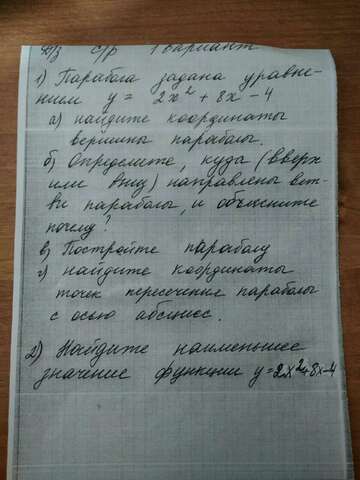 Д/з с/р 1 вариант
1) Парабола задана уравне-
нием y = 2x² + 8x - 4
а) найдите координаты
вершины параболы.
б) Определите, куда (вверх
или вниз) направлены вет-
ви параболы, и объясните
почему?
в) Постройте параболу
г) найдите координаты
точек пересечение параболы
с осью абсцисс.
2) Найдите наименьшее
значение функции y=2x²+8x-4